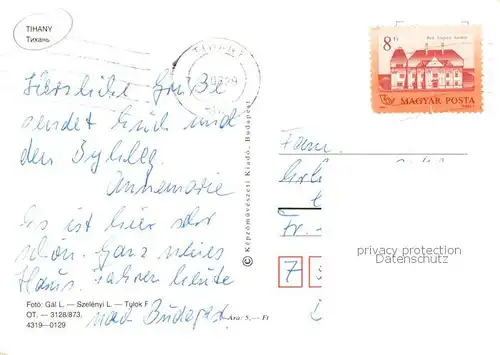 TIHANY
Тихань
Herzliche Grüße
sendet Euch und
den
Annemarie
Es ist hier sehr
schön. Ganz
Haus. Fahren heute
nach Budapest
Fotó: Gál L. — Szelényi L. — Tylok F
OT. — 3128/873.
4319—0129
Ára: 5,— Ft
© Képzőművészeti Kiadó, Budapest
TIHANY
8 Ft
MAGYAR POSTA
Fam.
Fr.
7
privacy protection
Datenschutz